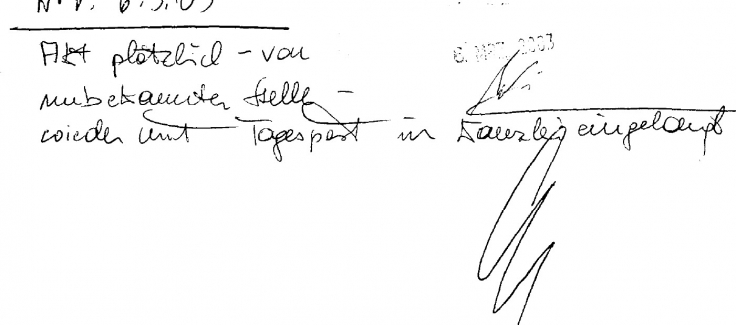 6.3.03
Akt plötzlich - von
unbekannter Stelle -
wieder mit Tagespost in Kanzlei eingelangt
2003